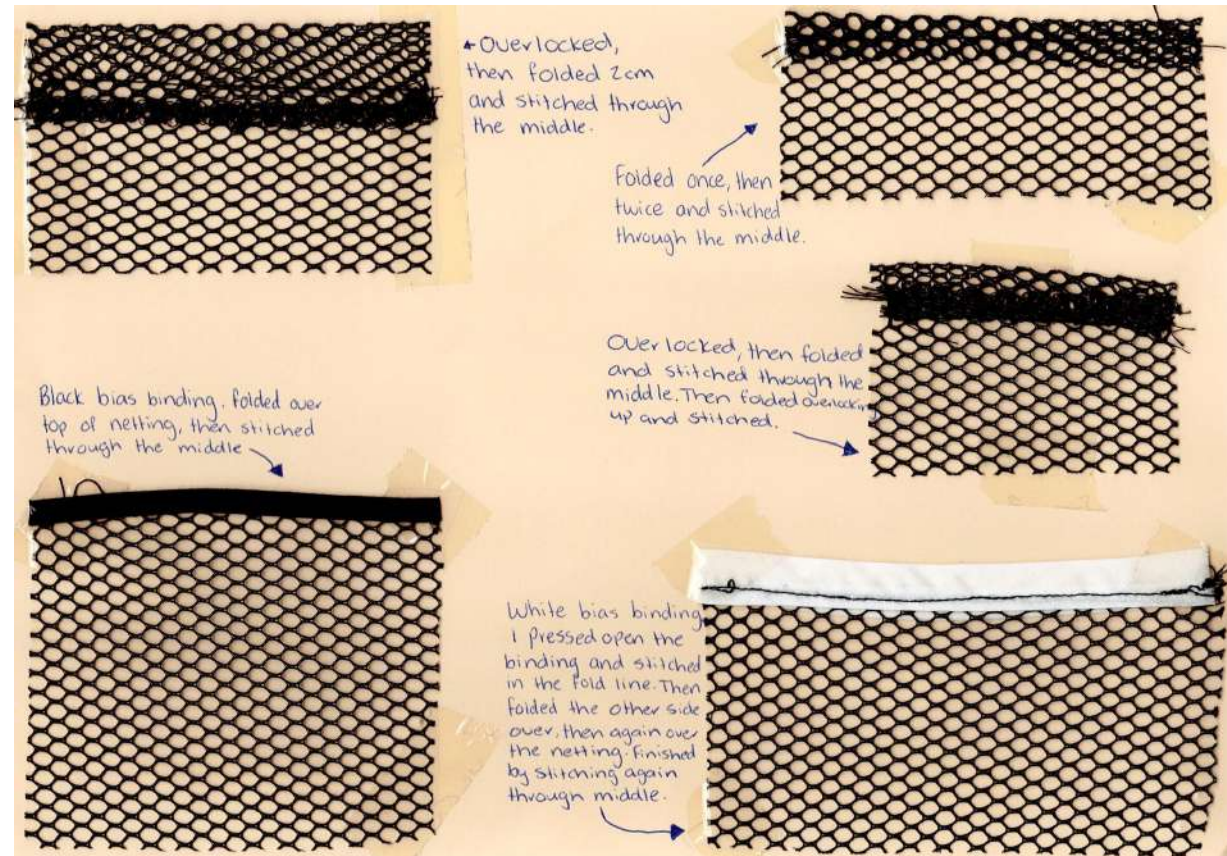 Overlocked,
then folded 2cm
and stitched through
the middle.
Folded once, then
twice and stitched
through the middle.
Overlocked, then folded
and stitched through the
middle. Then folded overlocking
up and stitched.
Black bias binding, folded over
top of netting, then stitched
through the middle
White bias binding
I pressed open the
binding and stitched
in the fold line. Then
folded the other side
over, then again over
the netting. Finished
by stitching again
through middle.